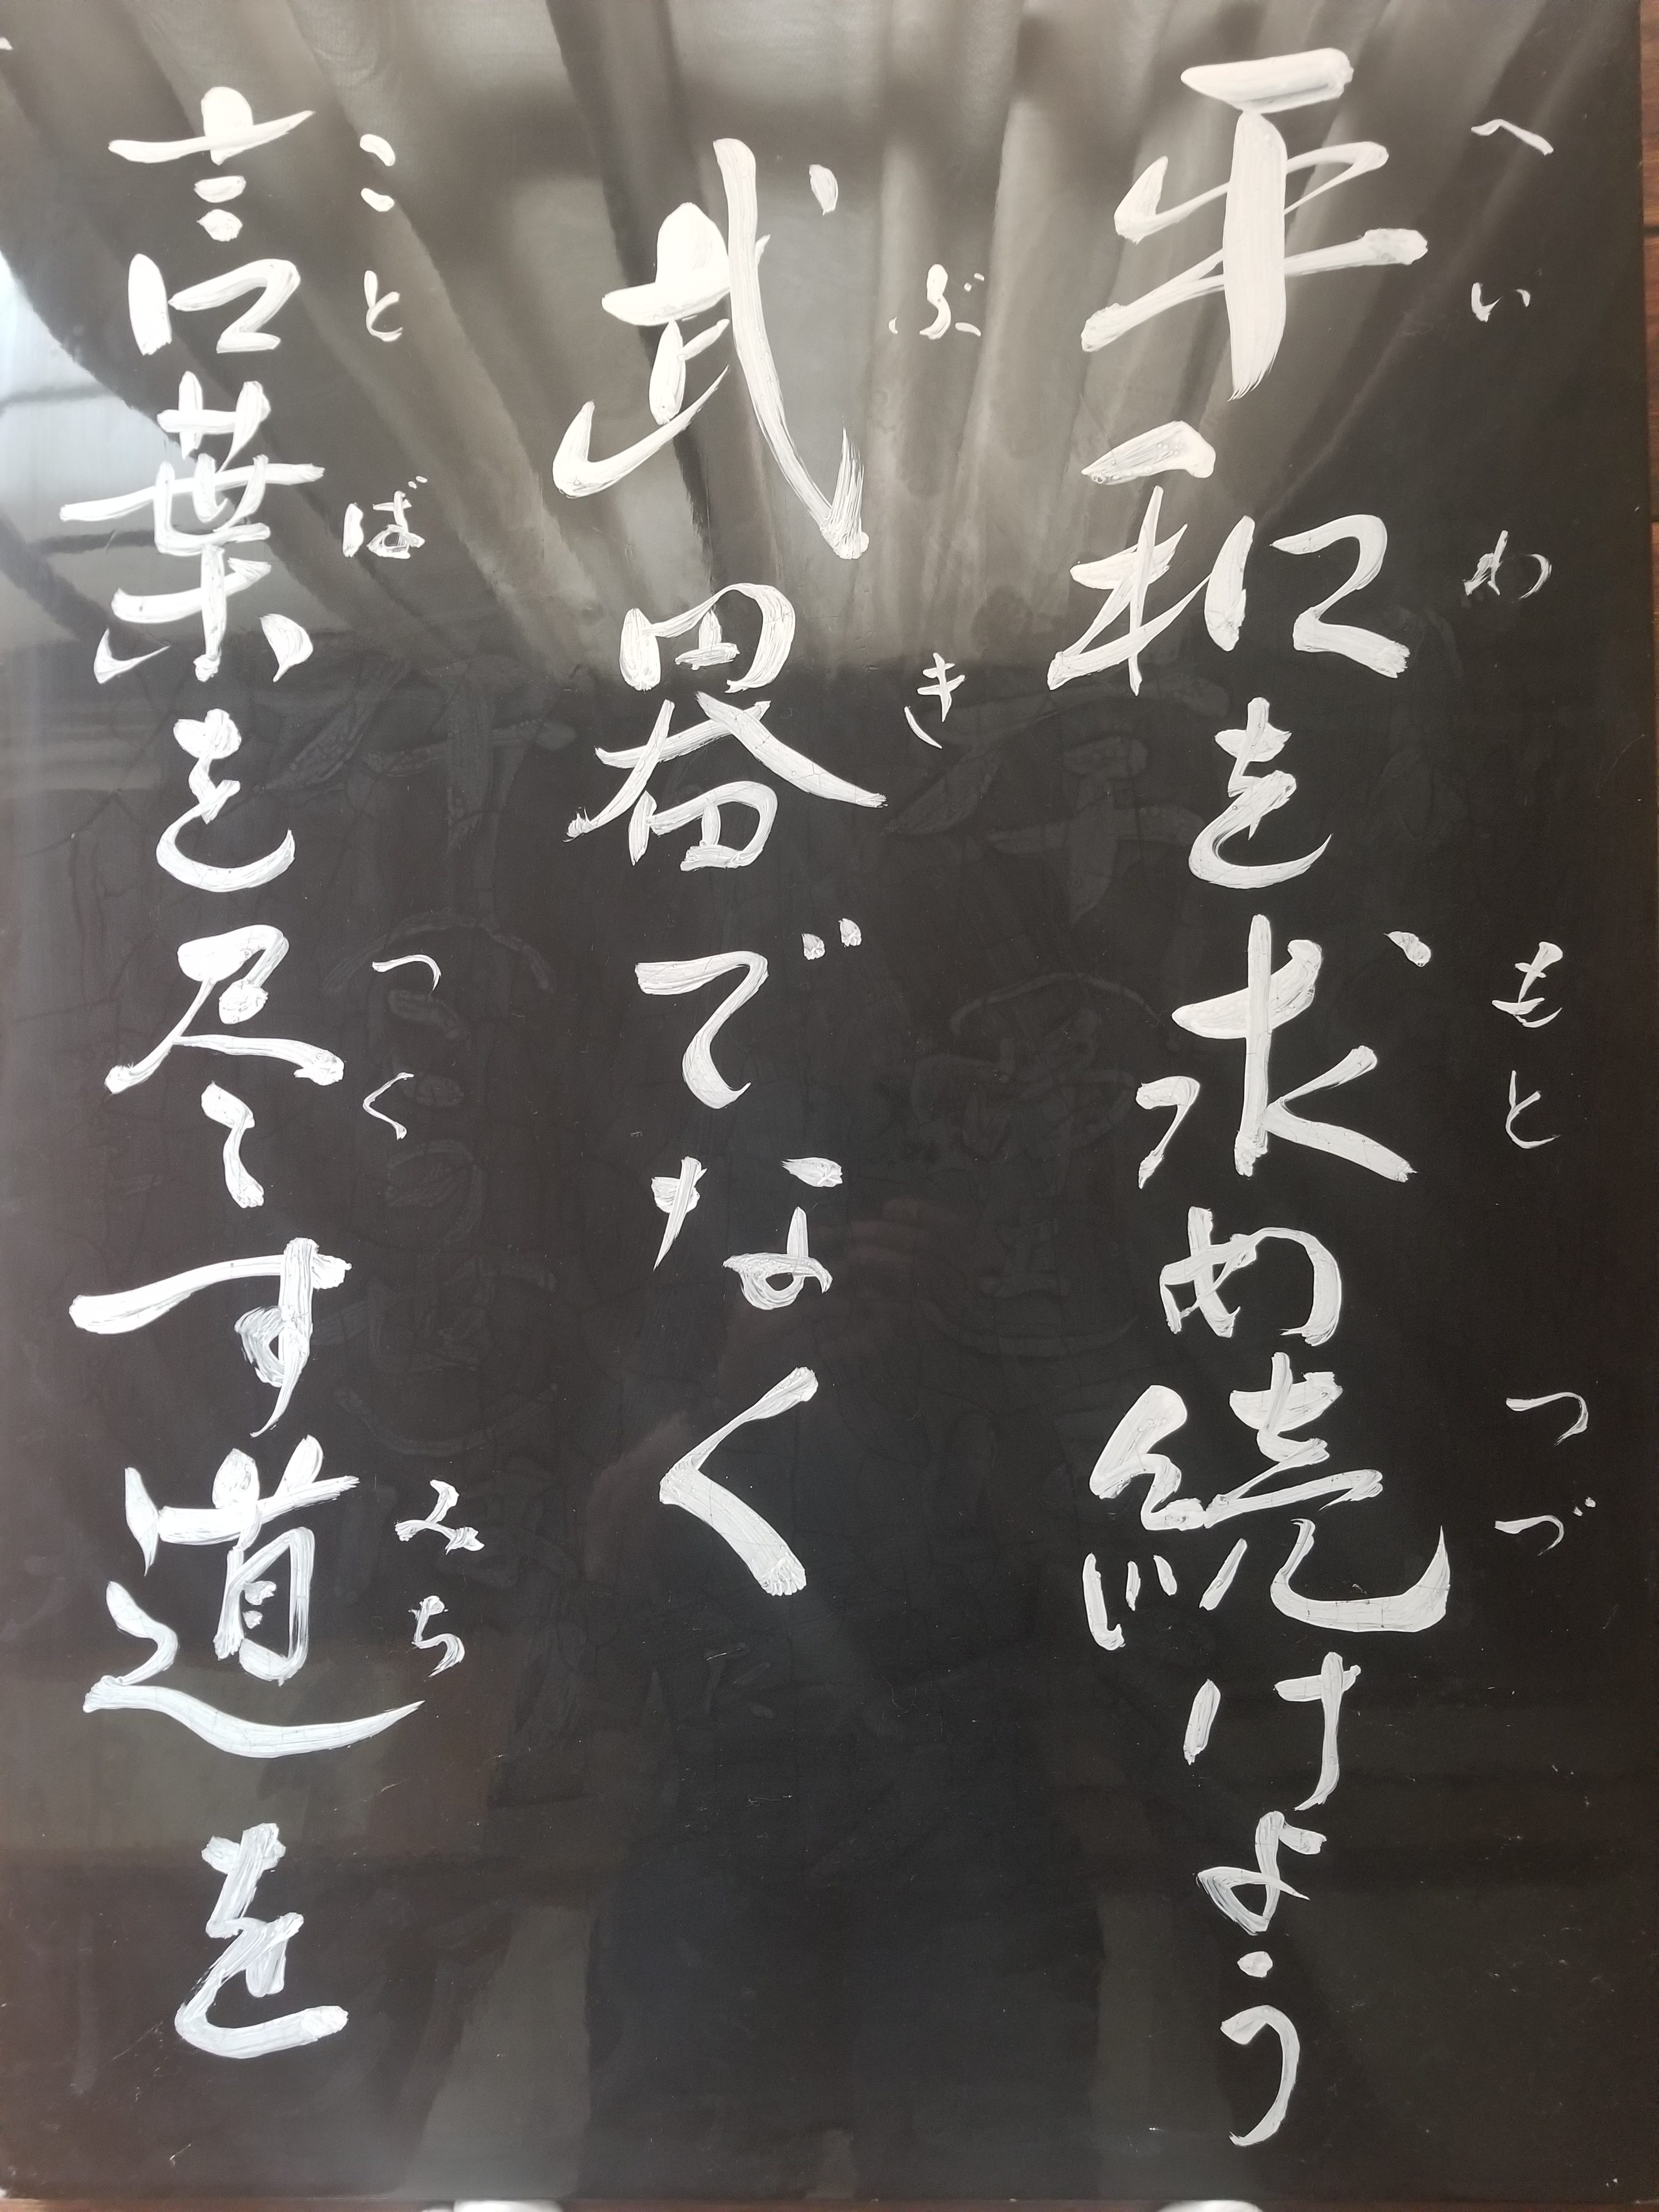 平和を求め続けよう
へいわ もと つづ
武器でなく
ぶき
言葉を尽くす道を
ことば つく みち